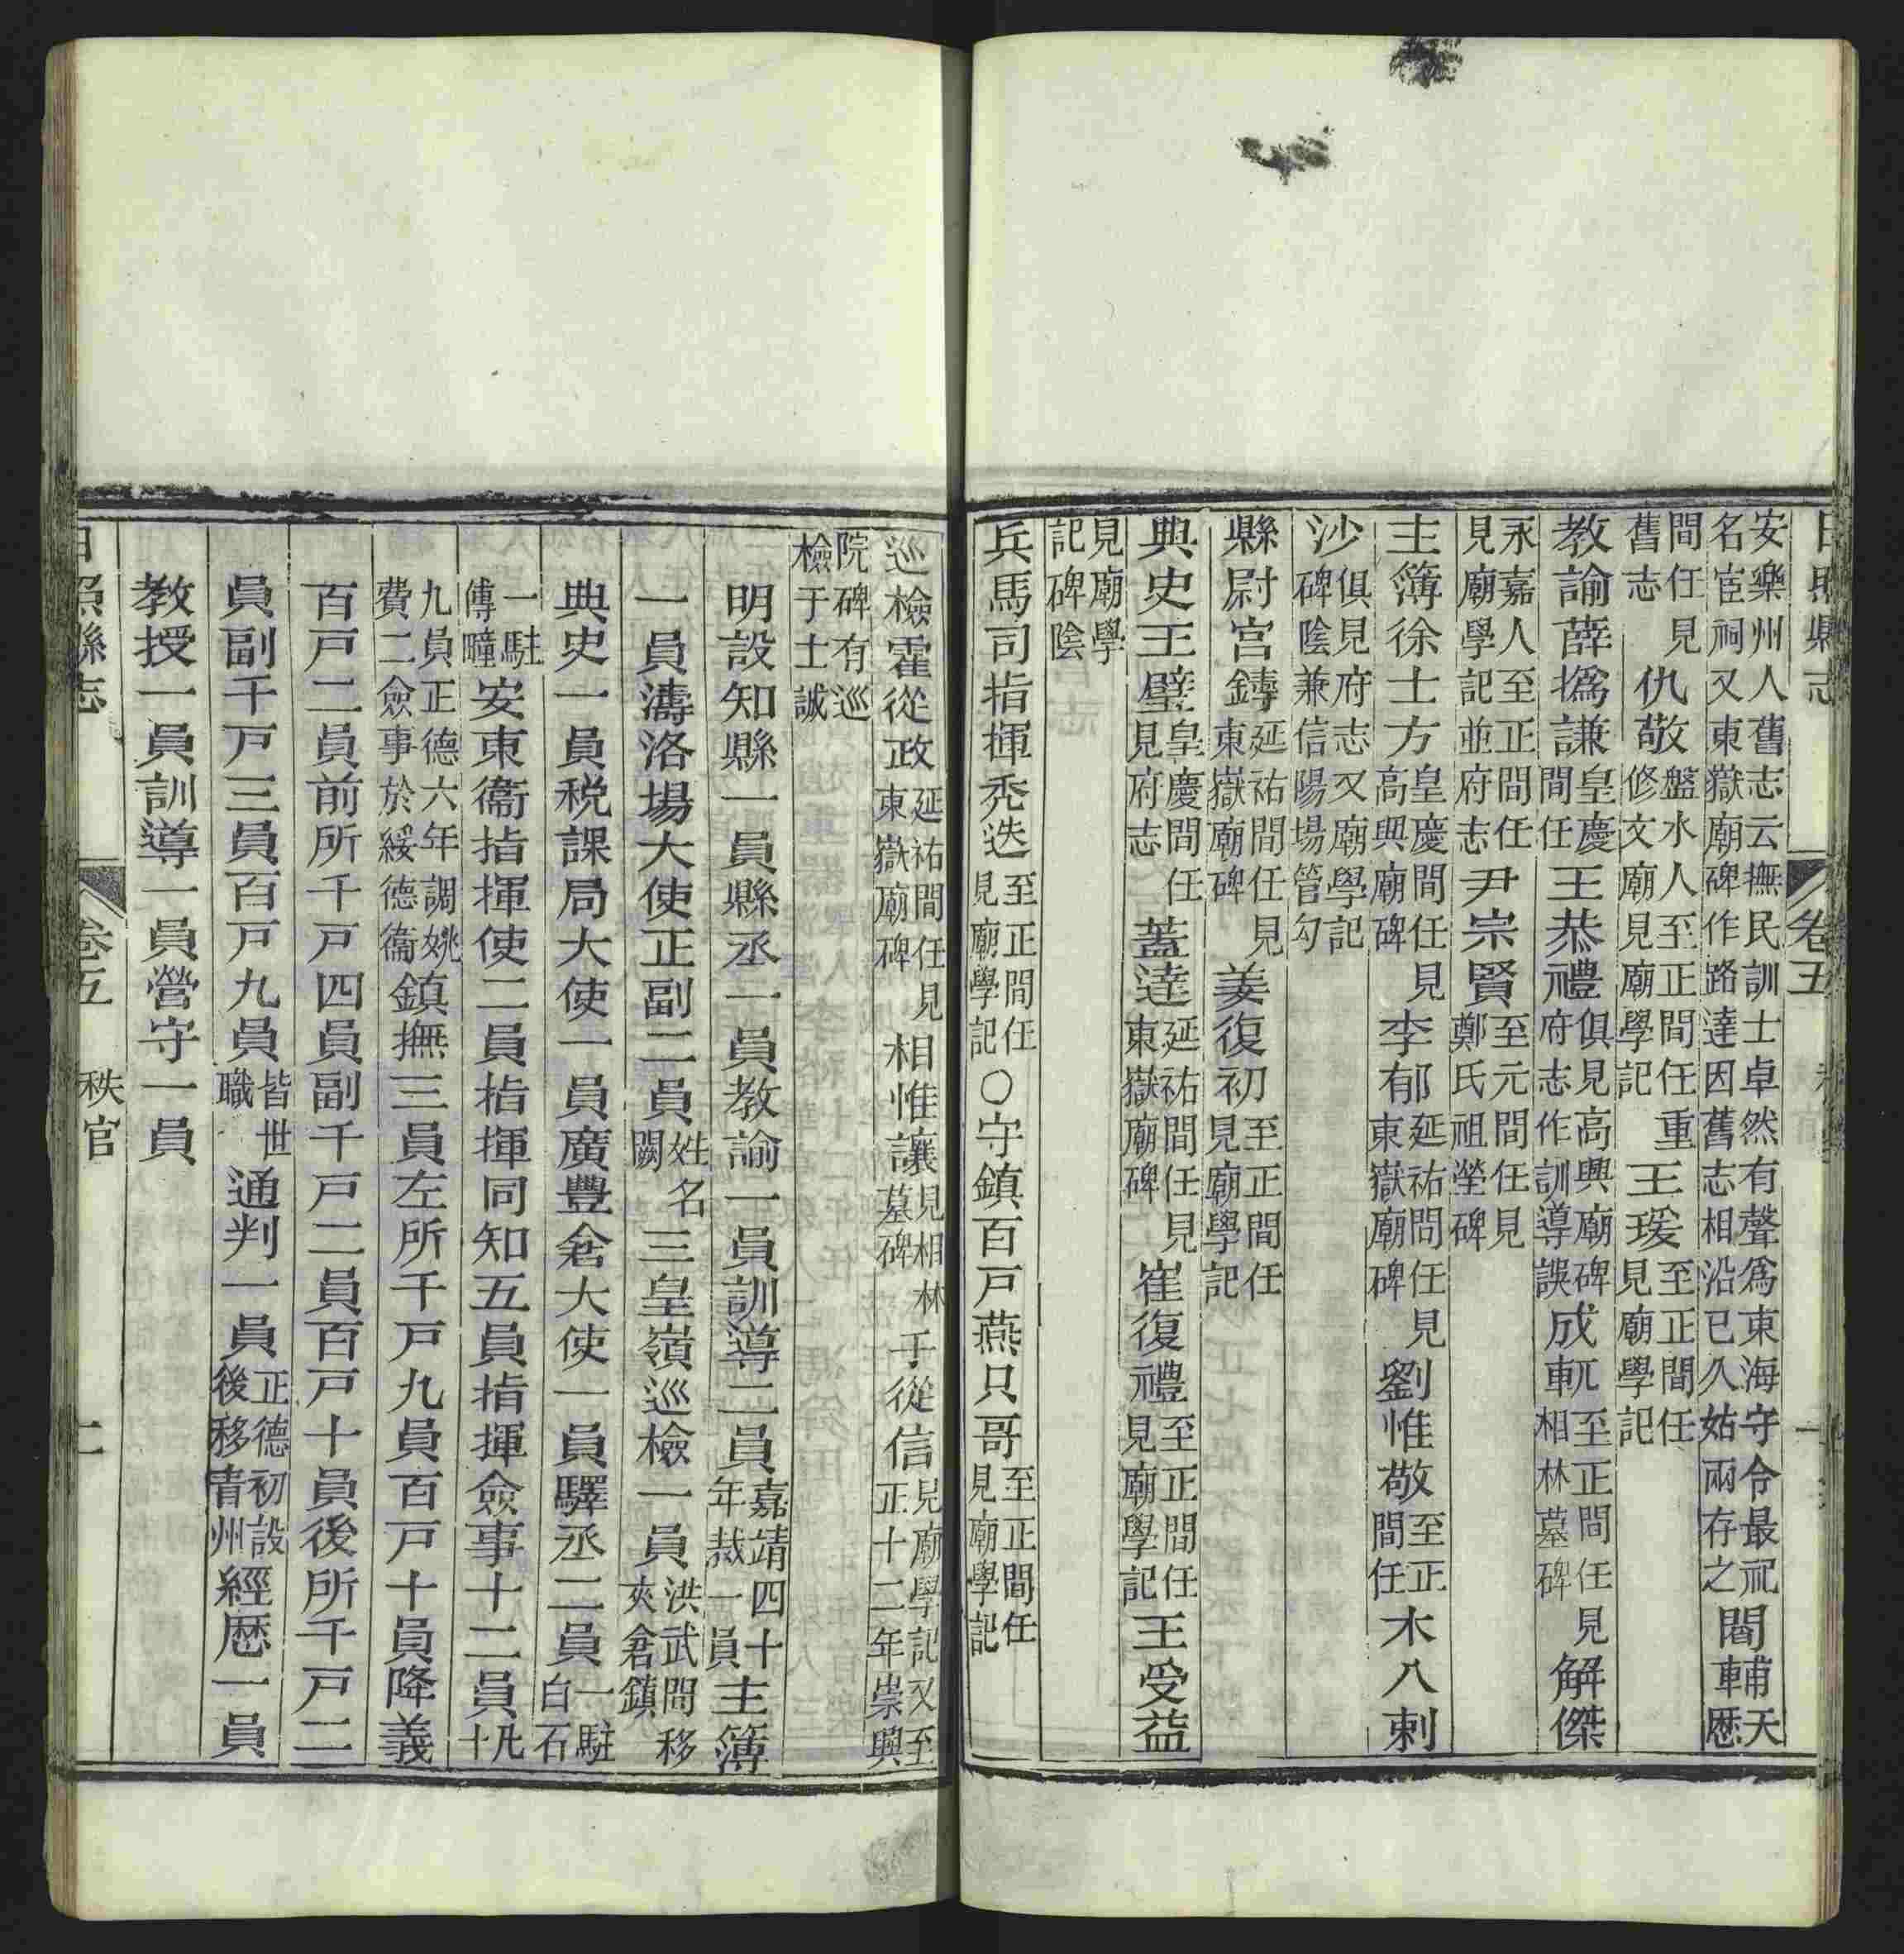 日照縣志 卷五
安樂州人舊志云撫民訓士卓然有聲爲東海守令最祀
名宦祠又東嶽廟碑作路達因舊志相沿已久姑兩存之閻輔天曆
間任見舊志仇敬盤水人至正間任重修文廟見廟學記王瑗至正間任見廟學記
教諭薛撝謙皇慶間任王恭禮俱見高興廟碑府志作訓導誤成軏至正間任見相林墓碑解傑
永嘉人至正間任見廟學記並府志尹宗賢至元間任見鄭氏祖塋碑
主簿徐士方皇慶間任見高興廟碑李郁延祐間任見東嶽廟碑劉惟敬至正間任木八剌
沙俱見府志又廟學記碑陰兼信陽場管勾
縣尉宮鑄延祐間任見東嶽廟碑姜復初至正間任見廟學記
典史王璧皇慶間任見府志蓋達延祐間任見東嶽廟碑崔復禮至正間任見廟學記王受益
見廟學記碑陰
兵馬司指揮禿迭至正間任見廟學記○守鎮百戸燕只哥至正間任見廟學記
巡檢霍從政延祐間任見東嶽廟碑相惟讓見相林墓碑于從信見廟學記又至正十二年崇興
院碑有巡檢于士誠
明設知縣一員縣丞一員教諭一員訓導二員嘉靖四十年裁一員主簿
一員濤洛場大使正副二員姓名闕三皇嶺巡檢一員洪武間移夾倉鎮
典史一員税課局大使一員廣豐倉大使一員驛丞二員一駐白石
一駐傅疃安東衞指揮使二員指揮同知五員指揮僉事十二員凡十
九員正德六年調姚費二僉事於綏德衞鎮撫三員左所千戸九員百戸十員降義
百戸二員前所千戸四員副千戸二員百戸十員後所千戸二
員副千戸三員百戸九員皆世職通判一員正德初設後移青州經歷一員
教授一員訓導一員營守一員
日照縣志 卷五 秩官 二